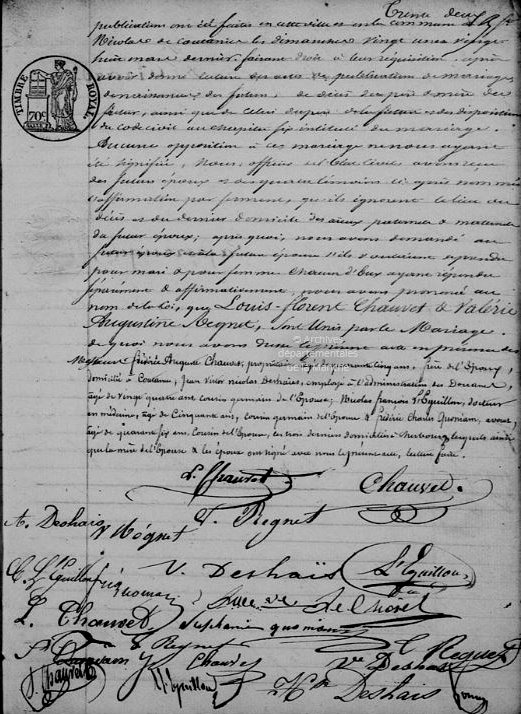 Trente deux
publications ont été faites en cette ville et en la commune de
Nicolas de Coutances les dimanches vingt un et vingt
huit mars dernier. faisant droit à leur réquisition, après
avoir donné lecture des actes de publication de mariage,
de naissance des futurs, de décès des père et mère du
futur, ainsi que de celui du père de la future et des dispositions
du code civil au chapitre six intitulé du mariage.
Aucune opposition à ces mariage ne nous ayant
été signifiée, Nous, officier de l'Etat civil avons reçu
des futurs époux et des quatre témoins ci après nommés
l'affirmation par serment, qu'ils ignorent le lieu du
décès et du dernier domicile des aïeux paternels & maternels
du futur époux; après quoi, nous avons demandé au
futur époux et à la future épouse s'ils voulaient se prendre
pour mari & pour femme chacun d'Eux ayant répondu
séparément & affirmativement, nous avons prononcé au
nom de la loi, que Louis-florent Chauvet & Valérie
Augustine Regnet, sont Unis par le Mariage.
de quoi nous avons dressé le présent acte en présence des
Messieurs frédéric Auguste Chauvet, propriétaire, âgé de quarante cinq ans, frère de l'Epoux,
domicilié à Coutances, Jean Victor Nicolas Deshaïs, employé à l'administration des Douanes,
âgé de vingt quatre ans cousin germain de l'Epouse; Nicolas françois L'Eguillon, docteur
en médecine, âgé de Cinquante ans, cousin germain de l'Epouse & frédéric Charles Quoniam, avoué,
âgé de quarante six ans, Cousin de l'Epouse, les trois derniers domiciliés à Cherbourg, lesquels ainsi
que la mère de l'Epouse & les époux ont signé avec nous le présent acte, lecture faite.
TIMBRE ROYAL
70c
© Archives
départementales
de la Manche
L. Chauvet
Chauvet.
A. Deshais
V. Régnet
T. Regnet
V. Deshaïs
L'Eguillon
Quoniam
Le Chorel
L. Chauvet
Stephanie quoniam
E Regnet
Chauvet
C Regnet
Ve Deshais
F. Chauvet
L'Eguillon
Deshais